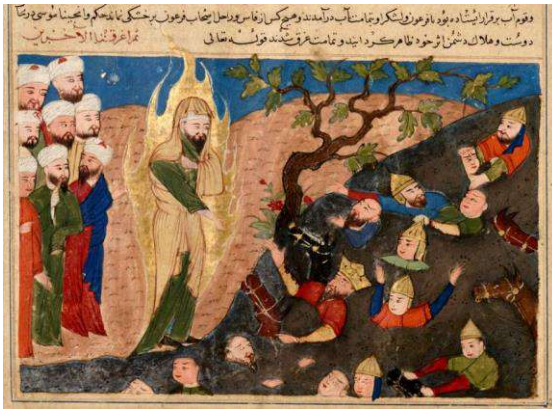 وقوم آب برقرار ایستاده بود تا فرعون و لشکر او تمامت بآب درآمدند و هیچ کس از فارس و راجل اصحاب فرعون بر خشکی نماند حکم وانجینا موسی در نجا
دوست و هلاک دشمن اثر خود ظاهر کردانید و تمامت غرق شدند قوله تعالی ثم اغرقنا الآخرین